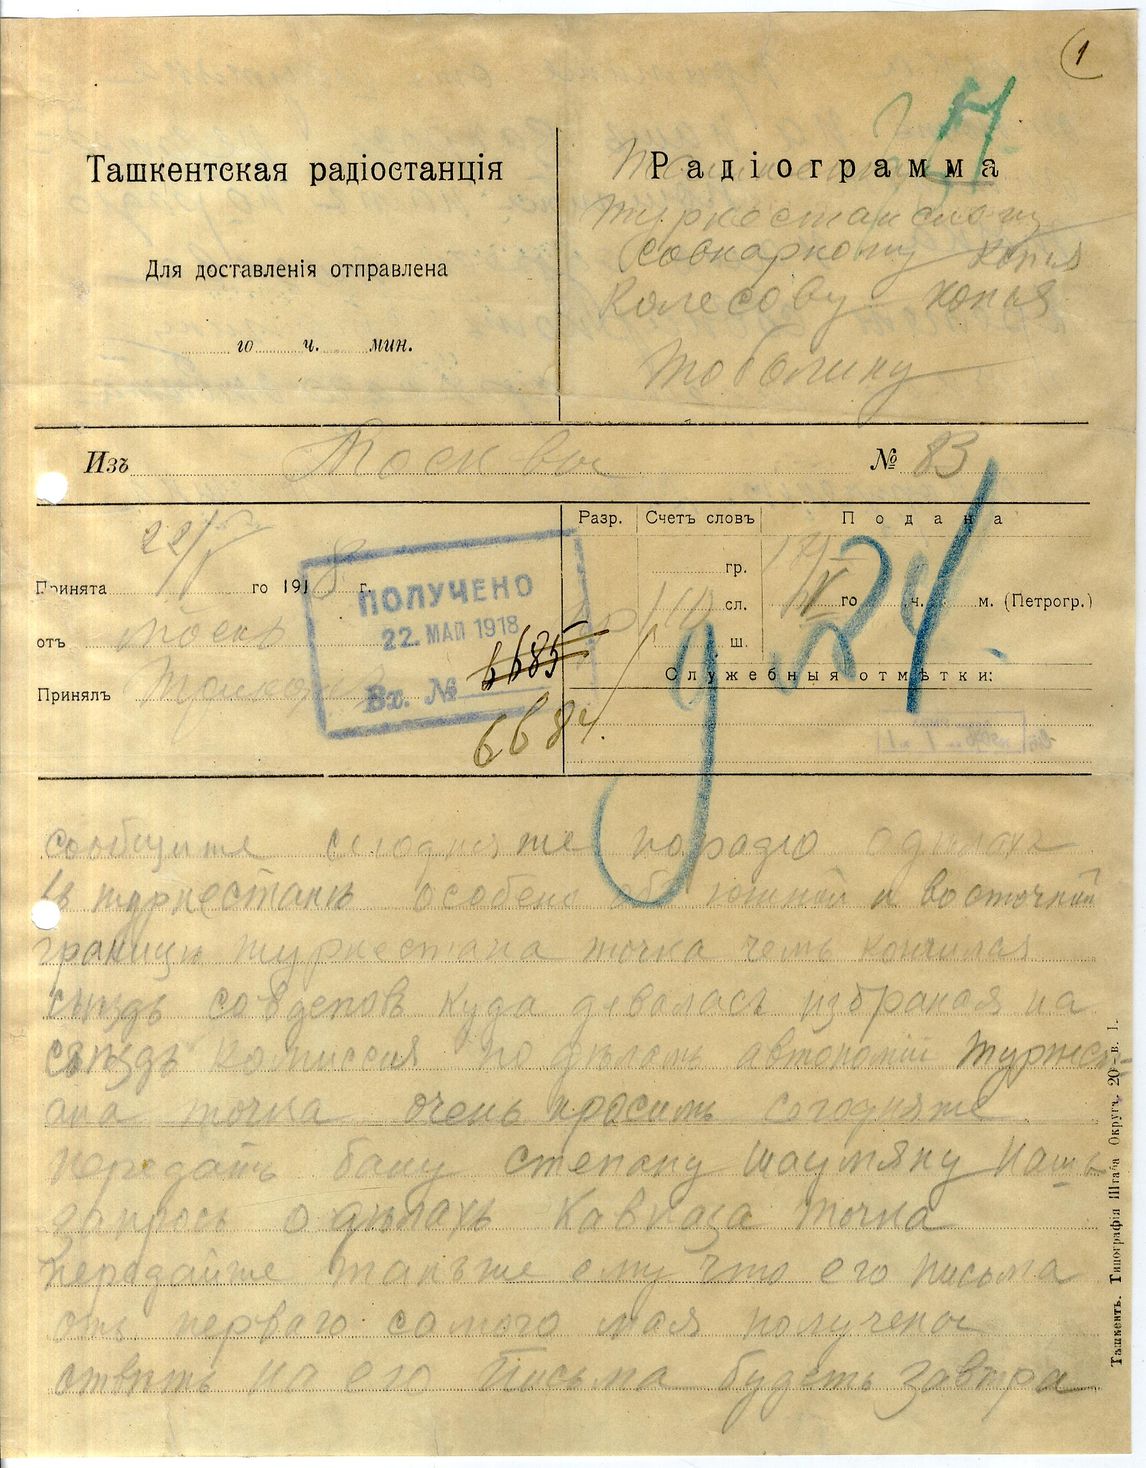 1
Ташкентская радіостанція
Для доставленія отправлена
го ч. мин.
Радіограмма
совнаркому копия
Колесову копья
Тоболину
Изъ Москвы № 83
22/V
Принята го 1918 г.
отъ Моск
Принялъ
ПОЛУЧЕНО
22. МАЯ 1918
Вх. № 6685
6684.
Разр. Счетъ словъ Подана
гр.
сл.
ш.
го ч. м. (Петрогр.)
Служебныя отмѣтки:
сообщите сегодняже порадіо одѣлахъ
въ туркестанѣ особено обѣ южной и восточной
границѣ туркестана точка чемъ кончился
съѣздъ совдеповъ куда девалась избраная на
съѣздѣ комиссия по дѣламъ автономіи туркест-
ана точка очень просимъ сегодняже
передать баку степану шаумяну нашъ
запросъ одѣлахъ кавказа точка
передайте такъже ему что его письма
отъ перваго самого мая получены
отвѣтъ на его письма будетъ завтра
Ташкентъ. Типографія Штаба Округ. 20 в. 1.